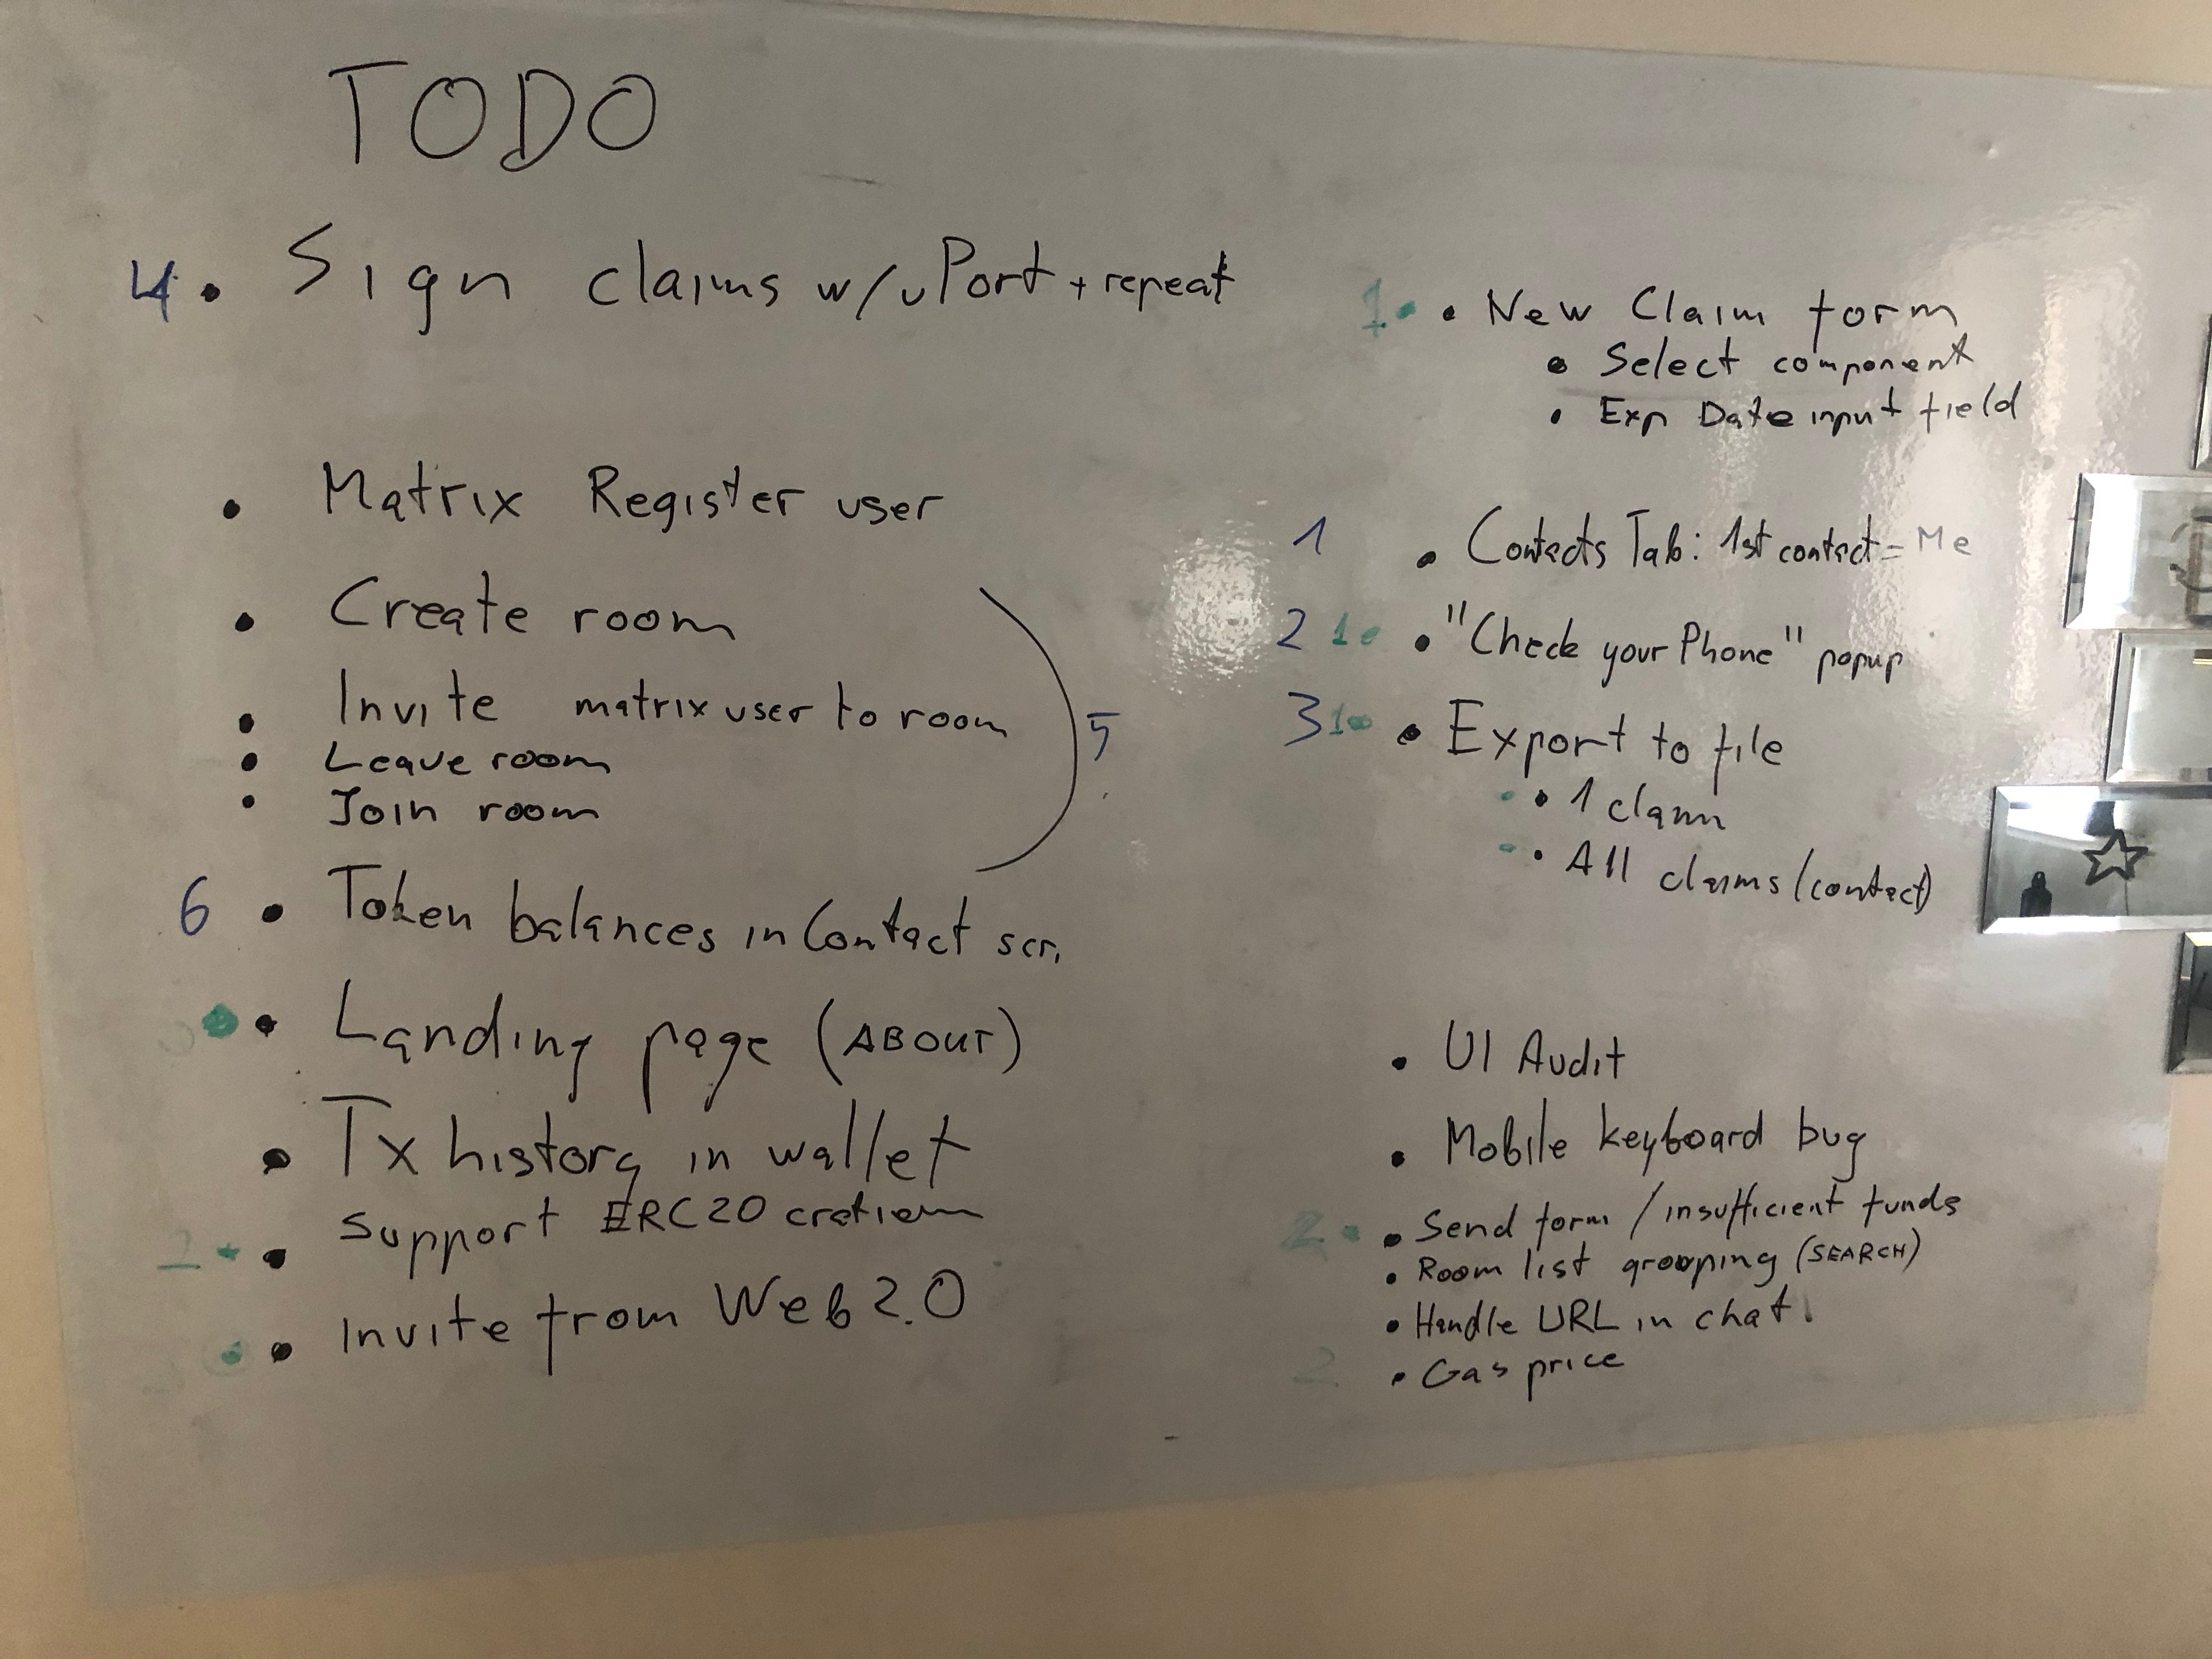 TODO
4. Sign claims w/uPort + repeat
• Matrix Register user
• Create room
• Invite matrix user to room
• Leave room
• Join room
5
6 • Token balances in Contact scr.
• Landing page (ABOUT)
• Tx history in wallet
• Support ERC20
• Invite from Web 2.0
1 • New Claim form
• Select component
• Exp Date input field
1 • Contacts Tab: 1st contact = Me
2 1 • "Check your Phone" popup
3 1 • Export to file
• 1 claim
• All claims (contact)
• UI Audit
• Mobile keyboard bug
2 • Send form / insufficient funds
• Room list grouping (SEARCH)
• Handle URL in chat
2 • Gas price